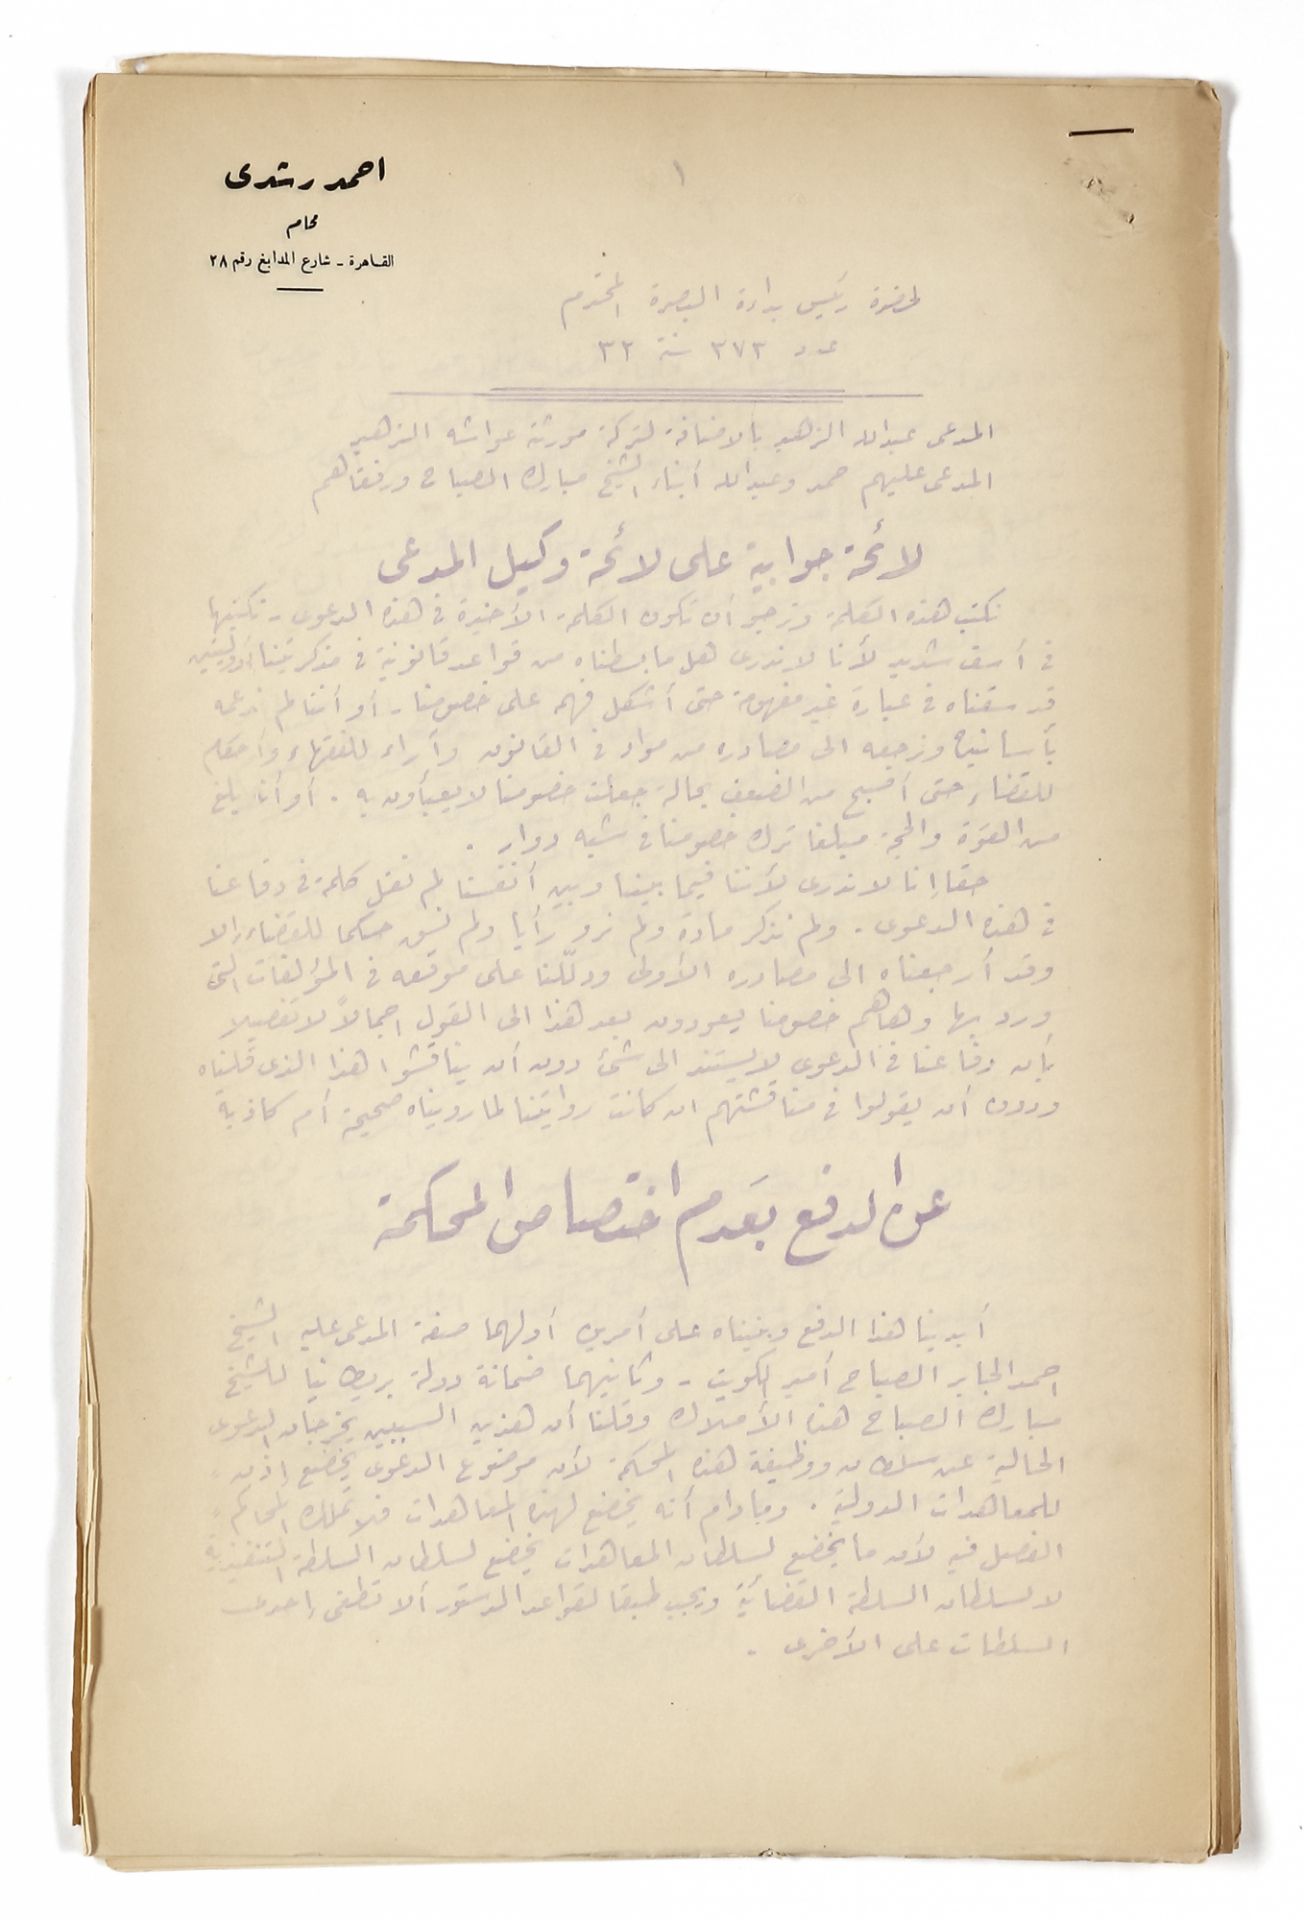 احمد رشدى
محام
القاهرة - شارع المدابغ رقم ٢٨
١
لحضرة رئيس بداءة البصرة المحترم
عدد ٣٧٣ سنة ٣٢
المدعى عبدالله الزهير بالاضافة لتركة مورثته عواشه الزهير
المدعى عليهم حمد وعبدالله أبناء الشيخ مبارك الصباح ورفقاهم
لائحة جوابية على لائحة وكيل المدعى
نكتب هذه الكلمة ونرجو أن تكون الكلمة الأخيرة فى هذه الدعوى - نكتبها
فى أسف شديد لأنا لا ندرى هل ما بسطناه من قواعد قانونية فى مذكرتينا الأوليتين
قد سقناه فى عبارة غير مفهومة حتى أشكل فهمه على خصومنا. أو أننا لم ندعمه
بأسانيده ونرجعه الى مصادره من مواد فى القانون وآراء للفقهاء وأحكام
للقضاء حتى أصبح من الضعف بحالة جعلت خصومنا لا يعبأون به . أو أنا بلغ
من القوة والحجة مبلغا ترك خصومنا فى شبه دوار .
حقا إنا لا ندرى لأننا فيما بيننا وبين أنفسنا لم نقل كلمة فى دفاعنا
فى هذه الدعوى . ولم نذكر مادة ولم نرو رأيا ولم نسق حكما للقضاء إلا
وقد أرجعناه الى مصادره الأولى ودللنا على موقعه فى المؤلفات التى
ورد بها وهاهم خصومنا يعودون بعد هذا الى القول اجمالاً لا تفصيلا
بأن دفاعنا فى الدعوى لا يستند الى شئ دون أن يناقشوا هذا الذى قلناه
ودون أن يقولوا فى مناقشتهم ان كانت روايتنا لما رويناه صحيحة أم كاذبة
عن الدفع بعدم اختصاص المحكمة
أبدينا هذا الدفع وبنيناه على أمرين أولهما صفة المدعى عليه الشيخ
احمد الجابر الصباح أمير الكويت - وثانيهما ضمانة دولة بريطانيا للشيخ
مبارك الصباح هذه الأملاك وقلنا أن هذين السببين يخرجان الدعوى
الحالية عن سلطان ووظيفة هذه المحكمة لأن موضوع الدعوى يخضع إذن
للمعاهدات الدولية . وما دام أنه يخضع لهذه المعاهدات فلا تملك المحاكم
الفصل فيه لأن ما يخضع لسلطان المعاهدات يخضع لسلطان السلطة التنفيذية
لا لسلطان السلطة القضائية ويجب طبقا لقواعد الدستور ألا تطغى إحدى
السلطات على الأخرى .